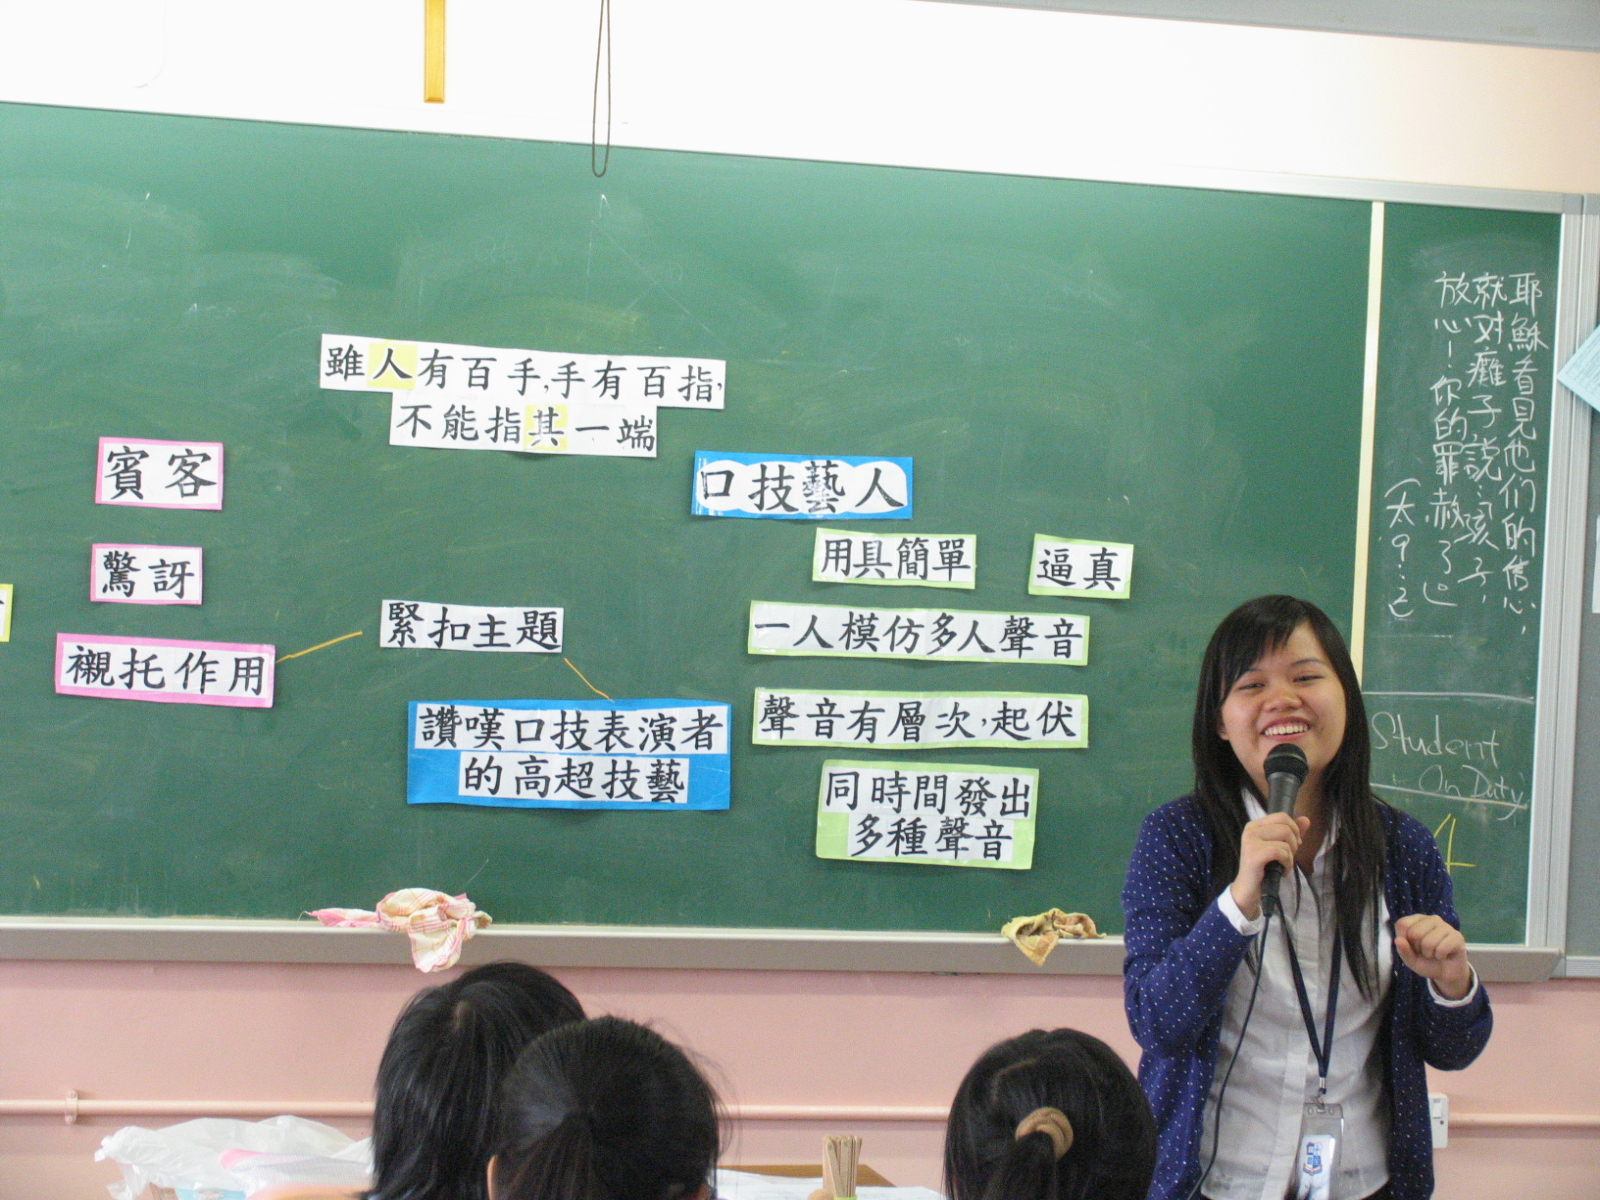 雖人有百手,手有百指,
不能指其一端
賓客
驚訝
襯托作用
緊扣主題
讚嘆口技表演者
的高超技藝
口技藝人
用具簡單
逼真
一人模仿多人聲音
聲音有層次,起伏
同時間發出
多種聲音
耶穌看見他们的信心,
就对癱子説:孩子,
放心!你的罪赦了
(太9:2)
Student
On Duty
4